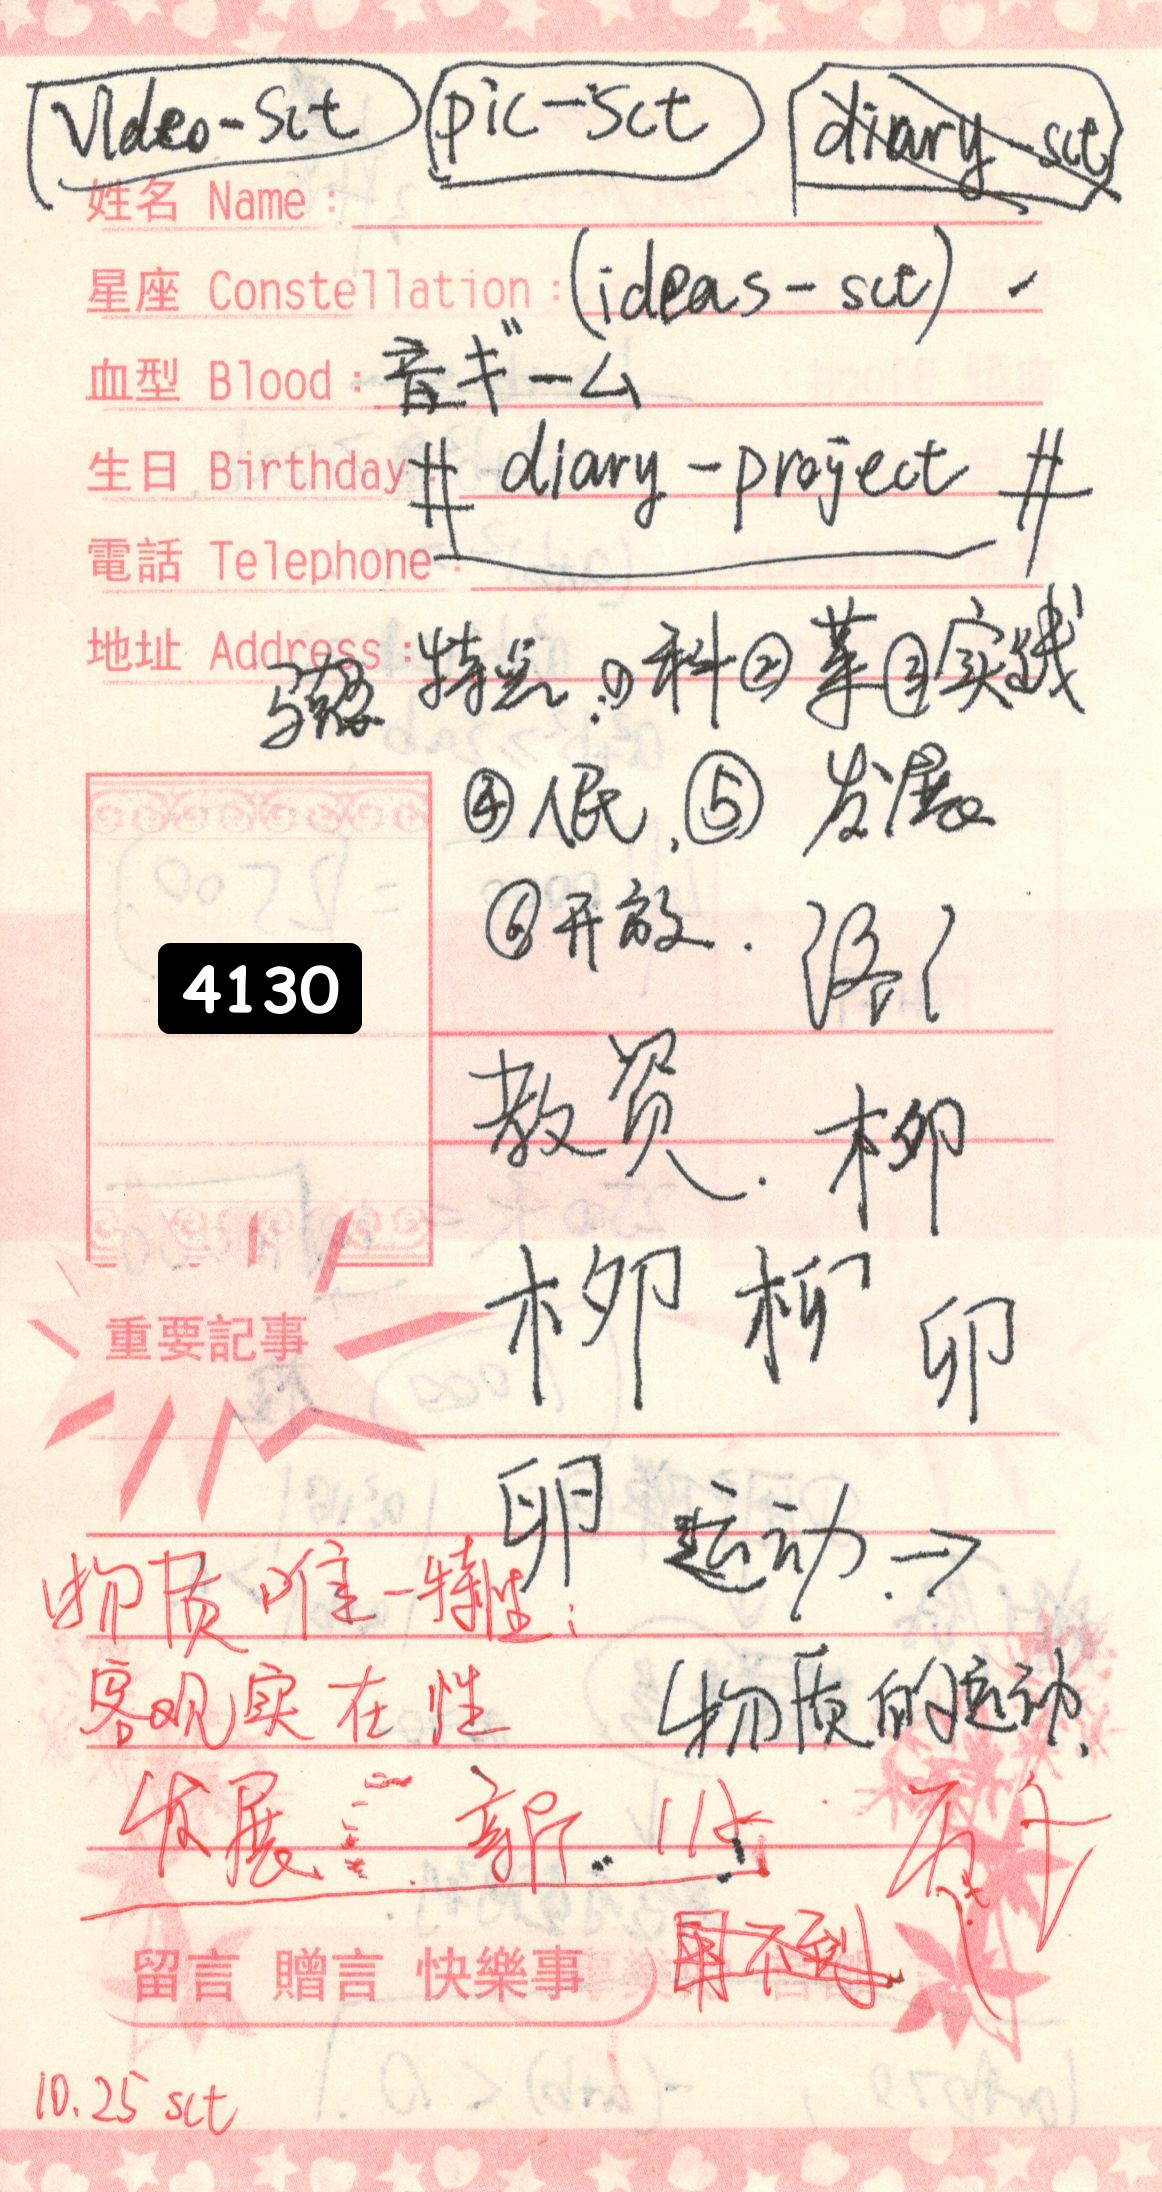 video-sct pic-sct diary-sct
姓名 Name:
星座 Constellation: (ideas-sct)
血型 Blood: 音ギーム
生日 Birthday: # diary-project #
電話 Telephone:
地址 Address: 特点:①科②革③实践
④人民.⑤发展
⑥开放.
4130
教员.柳
柳 柳 卯
重要記事
卵 运动.→
物质唯一特性:
客观实在性 物质的运动.
发展 新.
用不到
留言 贈言 快樂事
10.25 sct